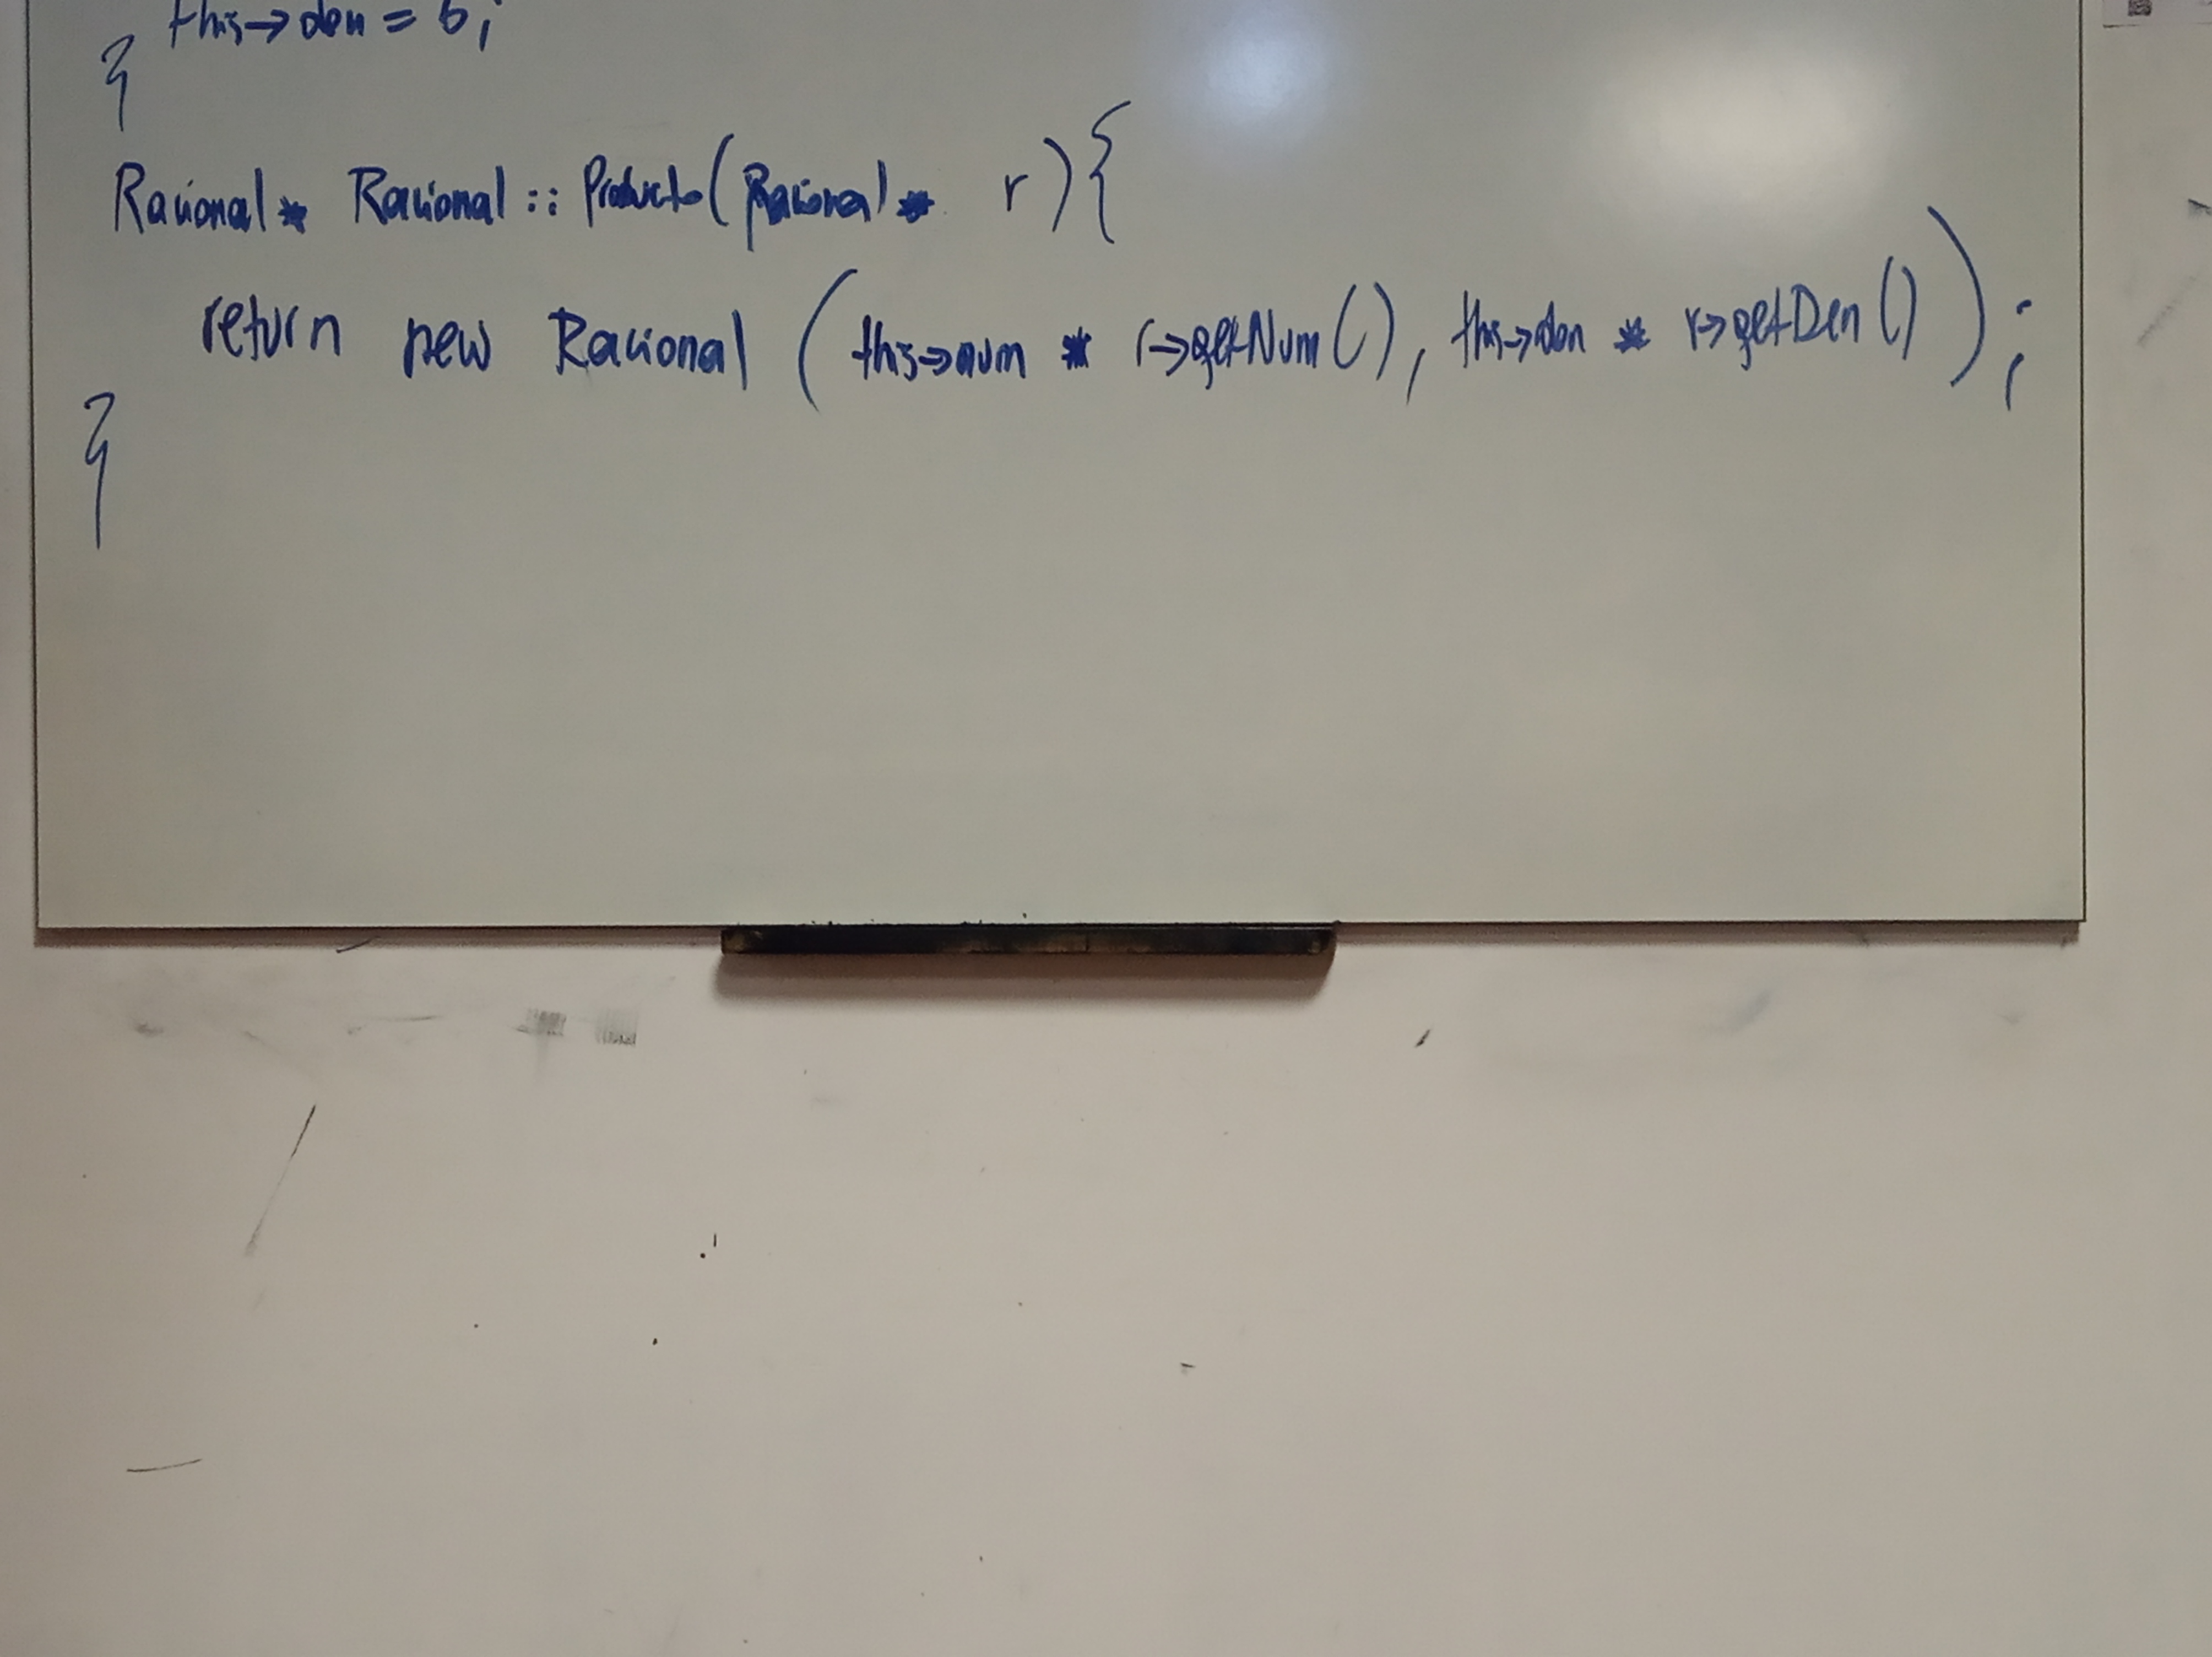 this->den = b;
}
Racional* Racional::Producto(Racional* r){
return new Racional (this->num * r->getNum(), this->den * r->getDen());
}